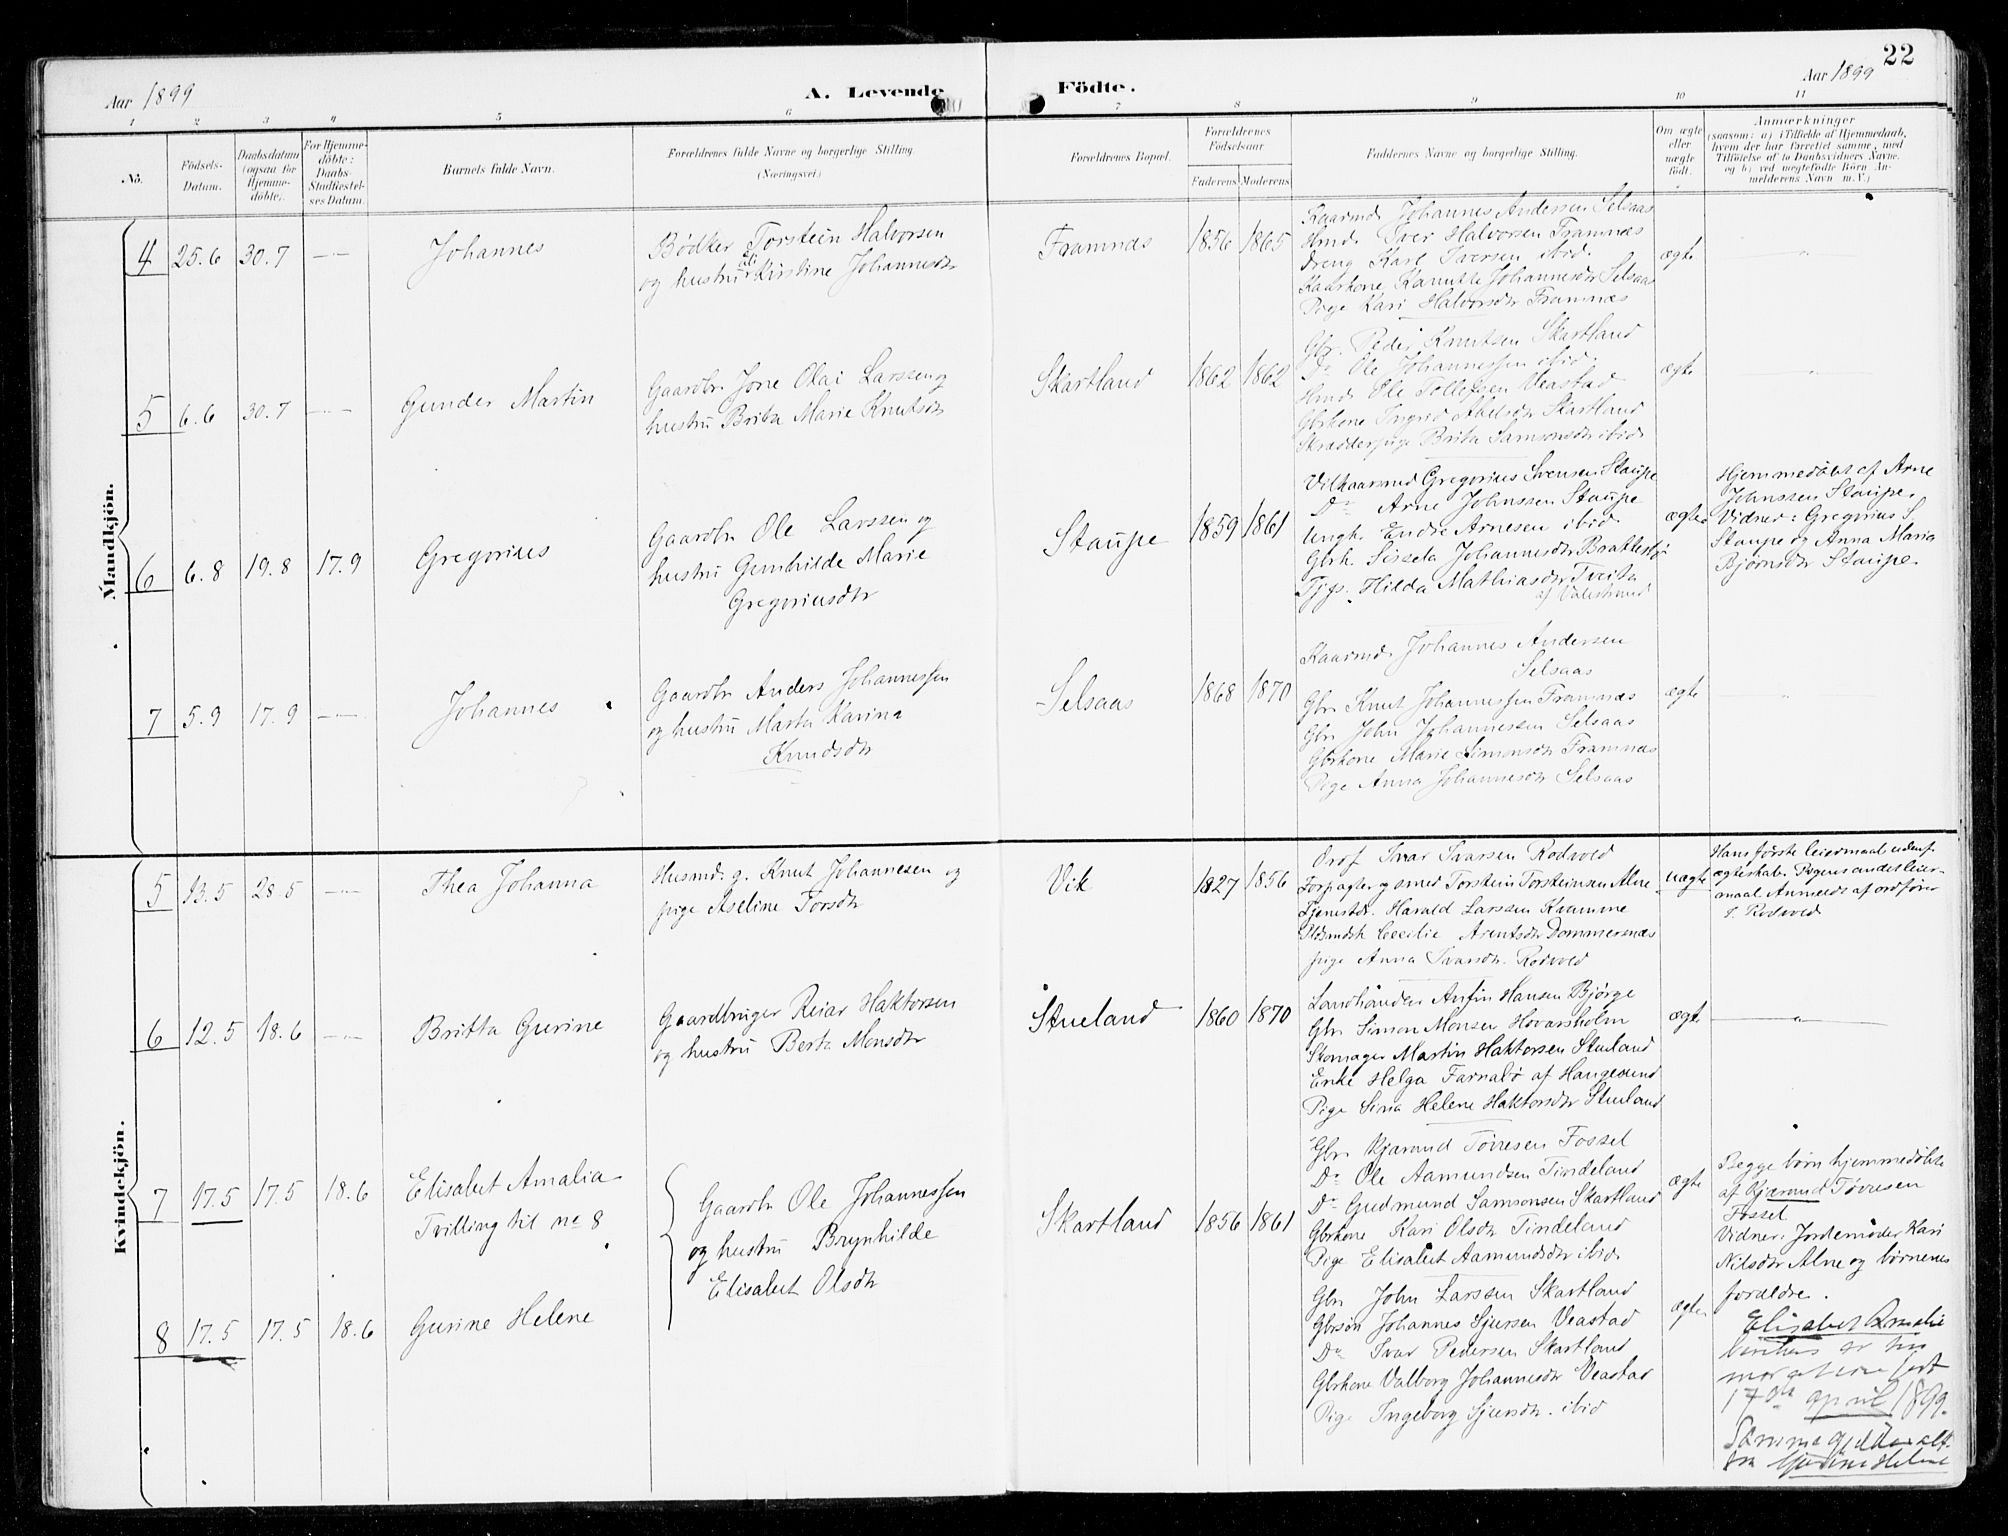 22
Aar 1899
A. Levende Födte.
Aar 1899
1 2 3 4 5 6 7 8 9 10 11
No.
Födsels-
Datum.
Daabsdatum
(ogsaa for
Hjemme-
döbte).
For Hjemme-
döbte:
Daabs-
Stadfæstel-
ses Datum.
Barnets fulde Navn.
Forældrenes fulde Navne og borgerlige Stilling.
(Næringsvei.)
Forældrenes Bopæl.
Forældrenes
Födselsaar
Faderens Moderens
Faddernes Navne og borgerlige Stilling.
Om ægte
eller
uægte
födt.
Anmærkninger
(saasom: a) i Tilfælde af Hjemmedaab,
hvem der har forrettet samme, med
Tilföielse af to Daabsvidners Navne.
og b) ved uægtefödte Börn An-
melderens Navn m. V.)
Mandkjön.
4 25.6 30.7 —"—
Johannes
Bødker Torstein Halvorsen
og hustru Eli Kirstine Johannesdtr
Framnæs
1856 1865
Kaarmd. Johannes Andersen Selsaas
Hmd. Iver Halvorsen Framnæs
Dreng Karl Iversen ibid.
Kaarkone Kanutte Johannesdtr Selsaas
Pige Kari Halvorsdtr Framnæs
ægte
—"—
5 6.6 30.7 —"—
Gunder Martin
Gaardbr Jone Olai Larssen og
hustru Brita Marie Knutsdtr
Skartland
1862 1862
Gbr. Peder Knutsen Skartland
Do Ole Johannessen ibid.
Hmd Ole Tollefsen Veastad
Gbrkone Ingrid Abelsdtr Skartland
Skrædderpige Brita Samsonsdtr ibid.
ægte
—"—
6 6.8 19.8 17.9
Gregorius
Gaardbr Ole Larssen og
hustru Gunhilde Marie
Gregoriusdtr
Staupe
1859 1861
Vilkaarsmd Gregorius Svensen Staupe
Do Arne Johnssen Staupe
Ungk. Endre Arnesen ibid.
Gbrk. Sissela Johannesdtr Brattebø
Tjgp. Hilda Mathiasdtr Tveita
af Valestrand
ægte
Hjemmedöbt af Arne
Johnssen Staupe.
Vidner: Gregorius S.
Staupe og Anna Maria
Bjørnsdtr Staupe.
7 5.9 17.9 —"—
Johannes
Gaardbr Anders Johannessen
og hustru Marta Karina
Knudsdtr
Selsaas
1868 1870
Kaarmd. Johannes Andersen
Selsaas
Gbr Knut Johannessen Framnæs
Gbr John Johannessen Selsaas
Gbrkone Marie Simonsdtr Framnæs
Pige Anna Johannesdtr Selsaas
ægte
—"—
Kvindekjön.
5 13.5 28.5 —"—
Thea Johanna
Husmd. g. Knut Johannesen og
pige Aseline Torsdtr
Vik
1827 1856
Ordf Ivar Ivarsen Rodvold
Forpagter og smed Torstein Torsteinsen Alne
Tjenestdr. Harald Larssen Kaumme
Pldsmdsk Cecilie Arentsdtr Dommersnæs
pige Anna Ivarsdtr Rodvold
uægte
Hans første leiermaal udenf.
ægteskab. Pigens andet leier-
maal. Anmeldt af ordfører
I. Rodvold
6 12.5 18.6 —"—
Britta Gurine
Gaardbruger Reiar Haktorsen
og hustru Berta Monsdtr
Stueland
1860 1870
Landhandler Anfin Hansen Bjørge
Gbr Simon Monsen Hovarsholm
Skomager Martin Haktorsen Stueland
Enke Helga Farnabø af Haugesund
Pige Sina Helene Haktorsdtr Stueland
ægte
—"—
7 17.5 17.5 18.6
Elisabet Amalia
Tvilling til no 8
Gaardbr Ole Johannessen
og hustru Brynhilde
Elisabet Olsdtr
Skartland
1856 1861
Gbr Kjarand Tøvresen Fossel
Do Ole Aamundsen Tindeland
Do Gudmund Samsonsen Skartland
Gbrkone Kari Olsdtr Tindeland
Pige Elisabet Aamundsdtr ibid.
ægte
Begge børn hjemmedøbte
af Kjarand Tøvresen
Fossel
Vidner: Jordemoder Kari
Nilsdtr Alne og børnenes
forældre.
8 17.5 17.5 18.6
Gurine Helene
Gbr John Larssen Skartland
Gbrsøn Johannes Sjursen Veastad
Do Ivar Pedersen Skartland
Gbrkone Valborg Johannesdtr Veastad
Pige Ingeborg Sjursdtr. ibid
ægte
Elisabet Amalie
født
17de april 1899.
Samme gjelder alt.
fra Gurine Helene